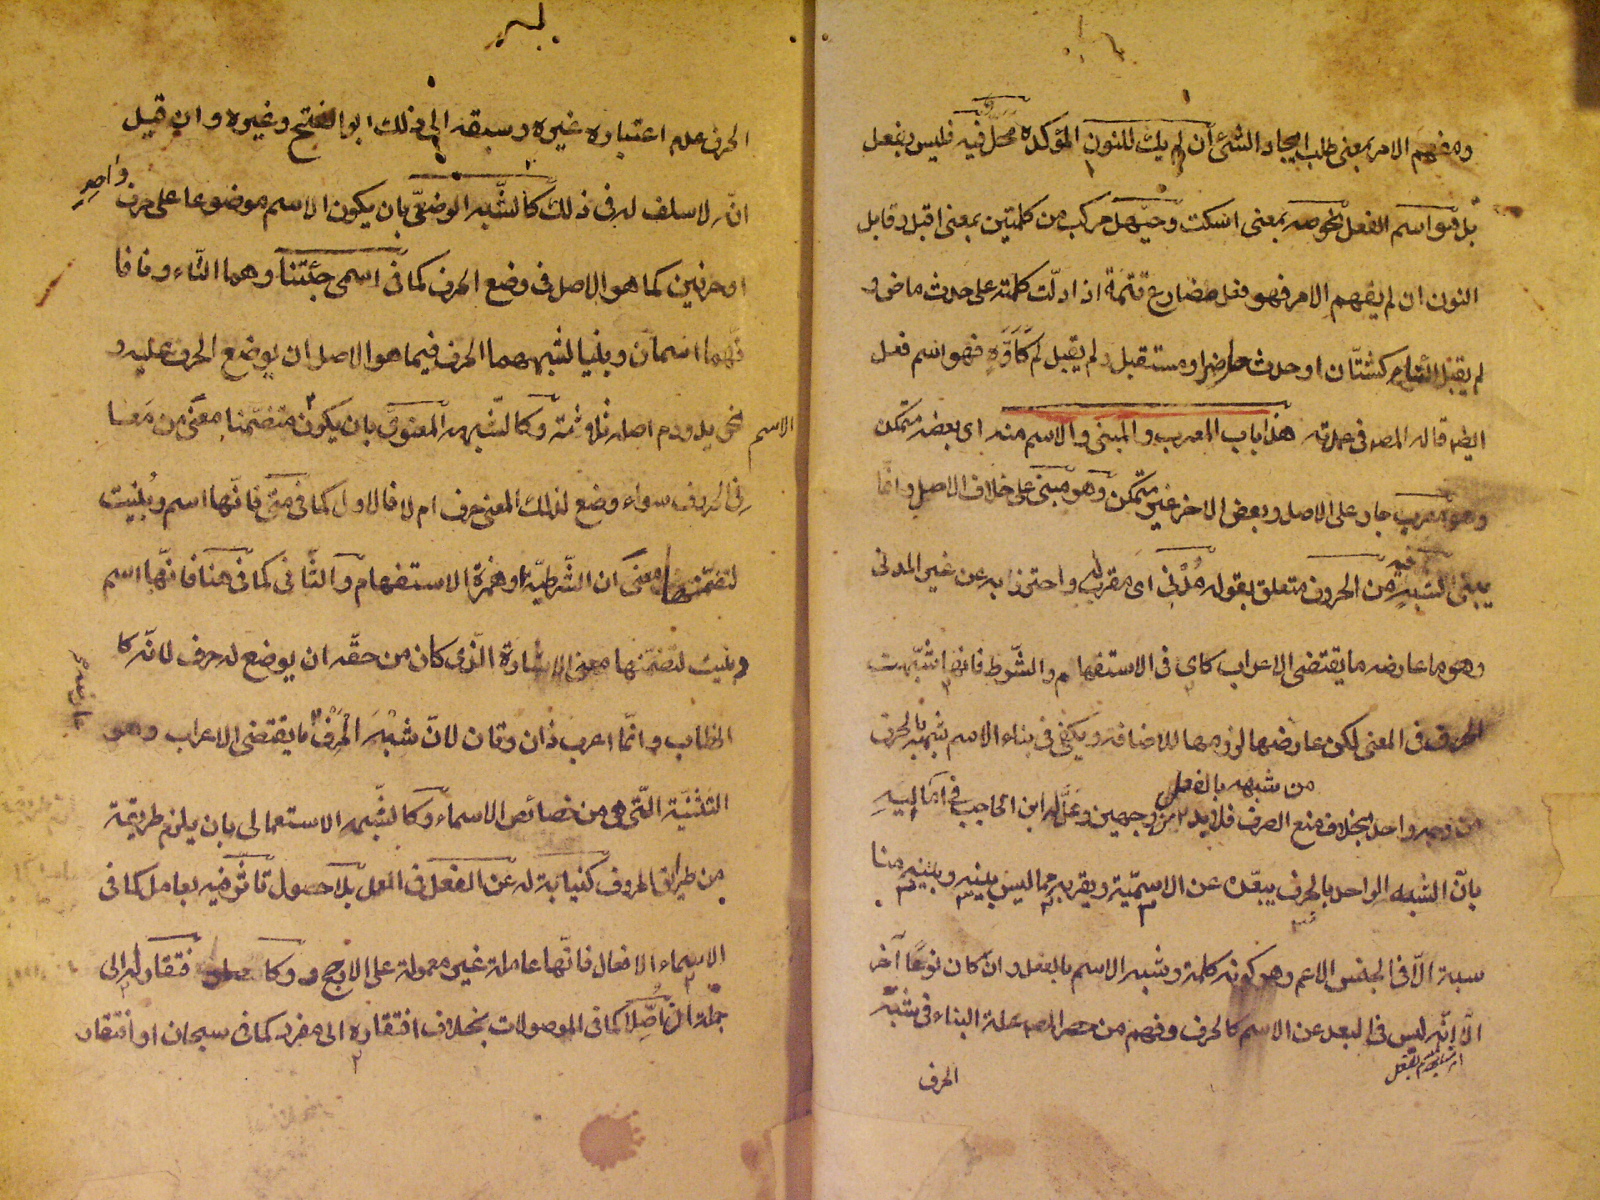 ومفهم الامر بمعنى طلب ايجاد الشئ أن لم يك للنون المؤكده محل فيه فليس بفعل
بل هو اسم الفعل نحو صه بمعنى اسكت وحيّهل مركب من كلمتين بمعنى اقبل وقابل
النون ان لم يفهم الامر فهو فعل مضارع تتمة اذا دلّت كلمة على حدث ماض و
لم يقبل التاء كشتّان او حدث حاضر او مستقبل ولم يقبل لم كَأَوَّهِ فهو اسم فعل
ايضا قاله المصه فى عمدته هذا باب المعرب والمبنى والاسم منه اى بعضه متمكن
وهو معرب جار على الاصل وبعض الاخر غير متمكن وهو مبنى على خلاف الاصل وانمّا
يبنى لشبهٍ فيه من الحروف متعلق بقوله مُدْنى اى مقرب له واحترز به عن غير المدنى
وهو ما عارضه ما يقتضى الاعراب كاى فى الاستفهام والشّرط فانها شبّهت
الحرف فى المعنى لكن عارضها لزومها للاضافة ويكفى فى بناء الاسم شبهه بالحرف
من شبهه بالفعل
من وجه واحد بخلاف منع الصرف فلا بد من وجهين وعَلّله ابن الحاجب فى اماليهِ
بانّ الشبه الواحد بالحرف يبعّده عن الاسميّة ويقربه مما ليس بينه وبينه منا
سبة الّا فى الجنس الاعم وهو كونه كلمة وشبه الاسم بالفعل وان كان نوعًا آخر
الّا انّه ليس فى البعد عن الاسم كالحرف وفهم من حصر المصه علة البناء فى شبه
الحرف
الحرف عدم اعتباره غيره وسبقه الى ذلك ابو الفتح وغيره وان قيل
انّه لا سلف له فى ذلك كالشّبه الوضعىّ بان يكون الاسم موضوعا على حرف واحدٍ
او حرفين كما هو الاصل فى وضع الحرف كما فى اسمى جئتنا وهما التّاء ونا فا
نّهما اسمان وبنيا لشبههما الحرف فيما هو الاصل ان يوضع الحرف عليه و
نحو يد ودم اصله ثلٰثة وكالشّبه المعنوىّ بان يكون الاسم متضمّنا معنًى من معا
نى الحروف سواء وضع لذلك المعنى حرف ام لا فالاول كما فى متى فانّها اسم وبُنيت
لتضمّنها معنى ان الشّرطيّة او همزة الاستفهام والثّانى كما فى هنا فانّها اسم
وبنيت لتضمّنها معنى الاشارة الّذى كان من حقّه ان يوضع له حرف لانّه كا
الخطاب وانّما اعرب ذان وتان لانّ شبْهَ الْحرفِ عارضه ما يقتضى الاعراب وهو
التّثنية الّتى هى من خصائص الاسماء وكالشّبه الاستعمالى بان يلزم طريقة
من طرائق الحروف كنيابة له عن الفعل فى العمل بلا حصول تأثّر فيه بعامل كما فى
الاسماء الافعال فانّها عاملة غير معمولة على الارجح وكافتقار له الى
جملة ان أُصِّلا كما فى الموصولات بخلاف افتقاره الى مفرد كما فى سبحان او افتقار